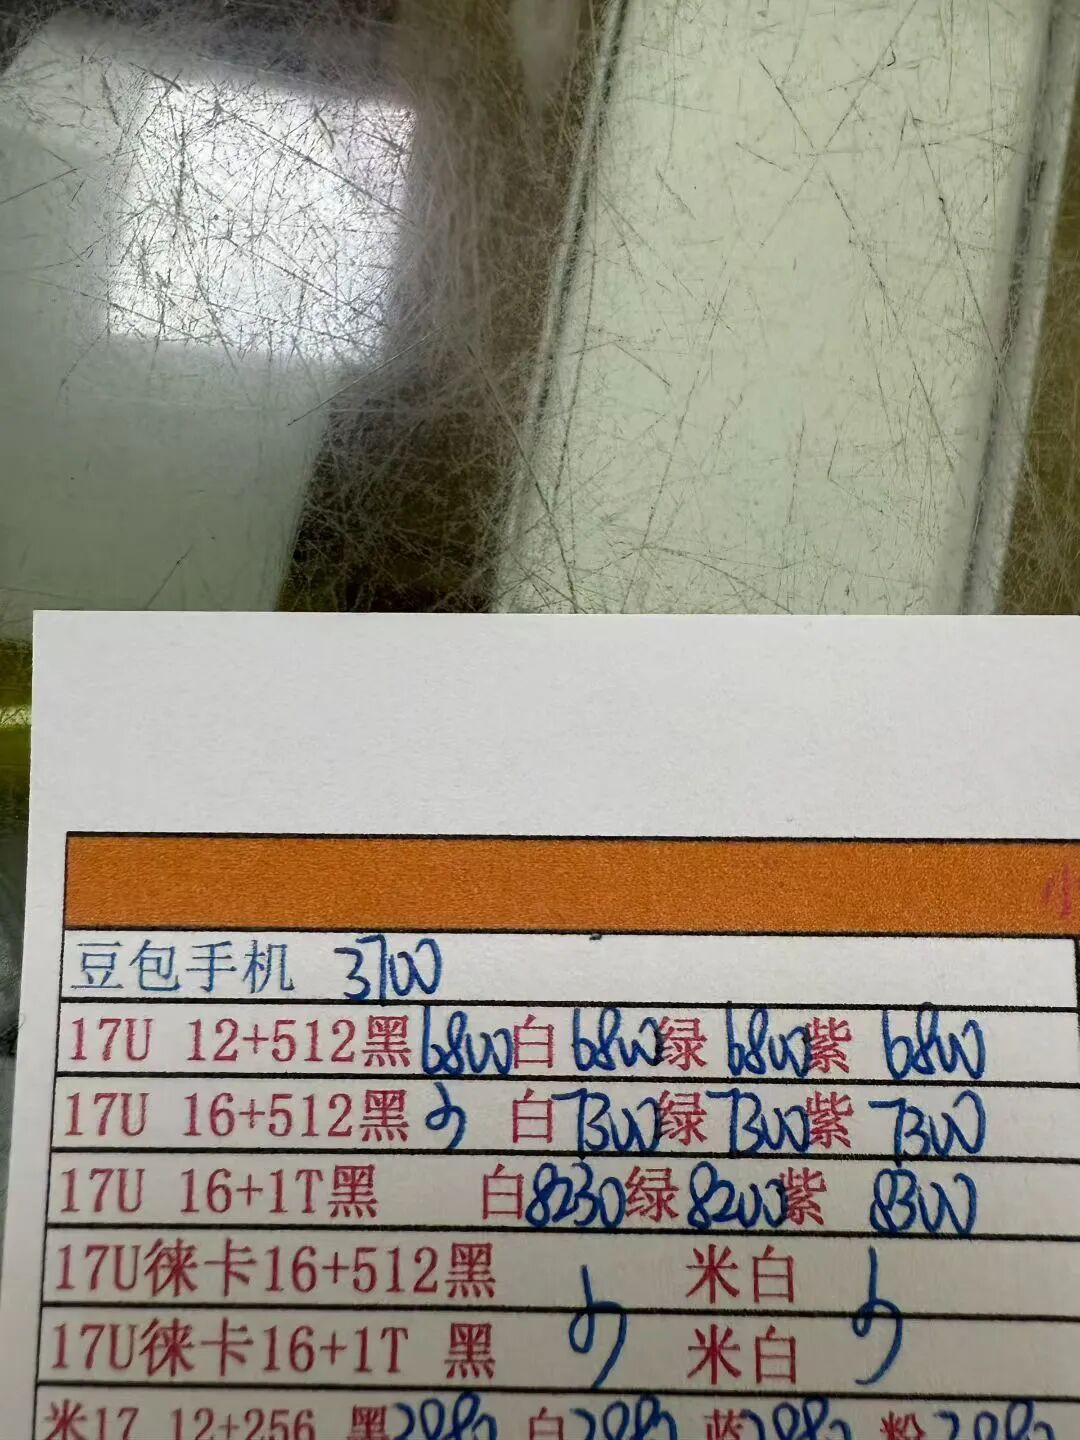 豆包手机 3700
17U 12+512黑6800白6800绿6800紫 6800
17U 16+512黑 白7300绿7300紫 7300
17U 16+1T黑 白8230绿8200紫 8300
17U徕卡16+512黑 米白
17U徕卡16+1T 黑 米白
米17 12+256 黑 白 蓝 粉